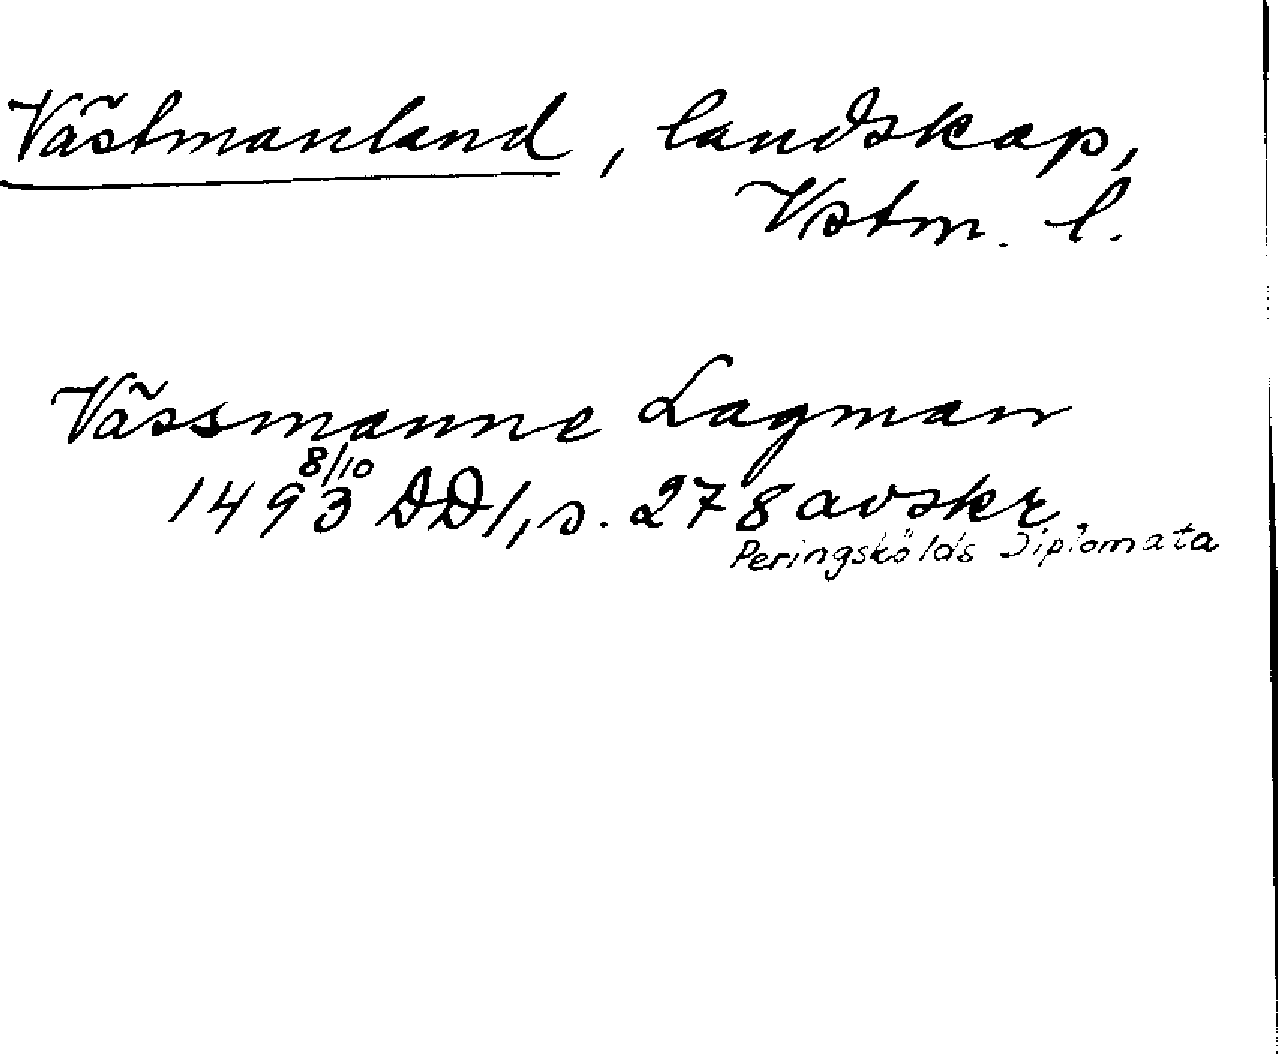 Västmanland, landskap,
Vstm. l.
Vässmanne Lagman
8/10
1493 DD1, s. 278 avskr.
Peringskölds Diplomata